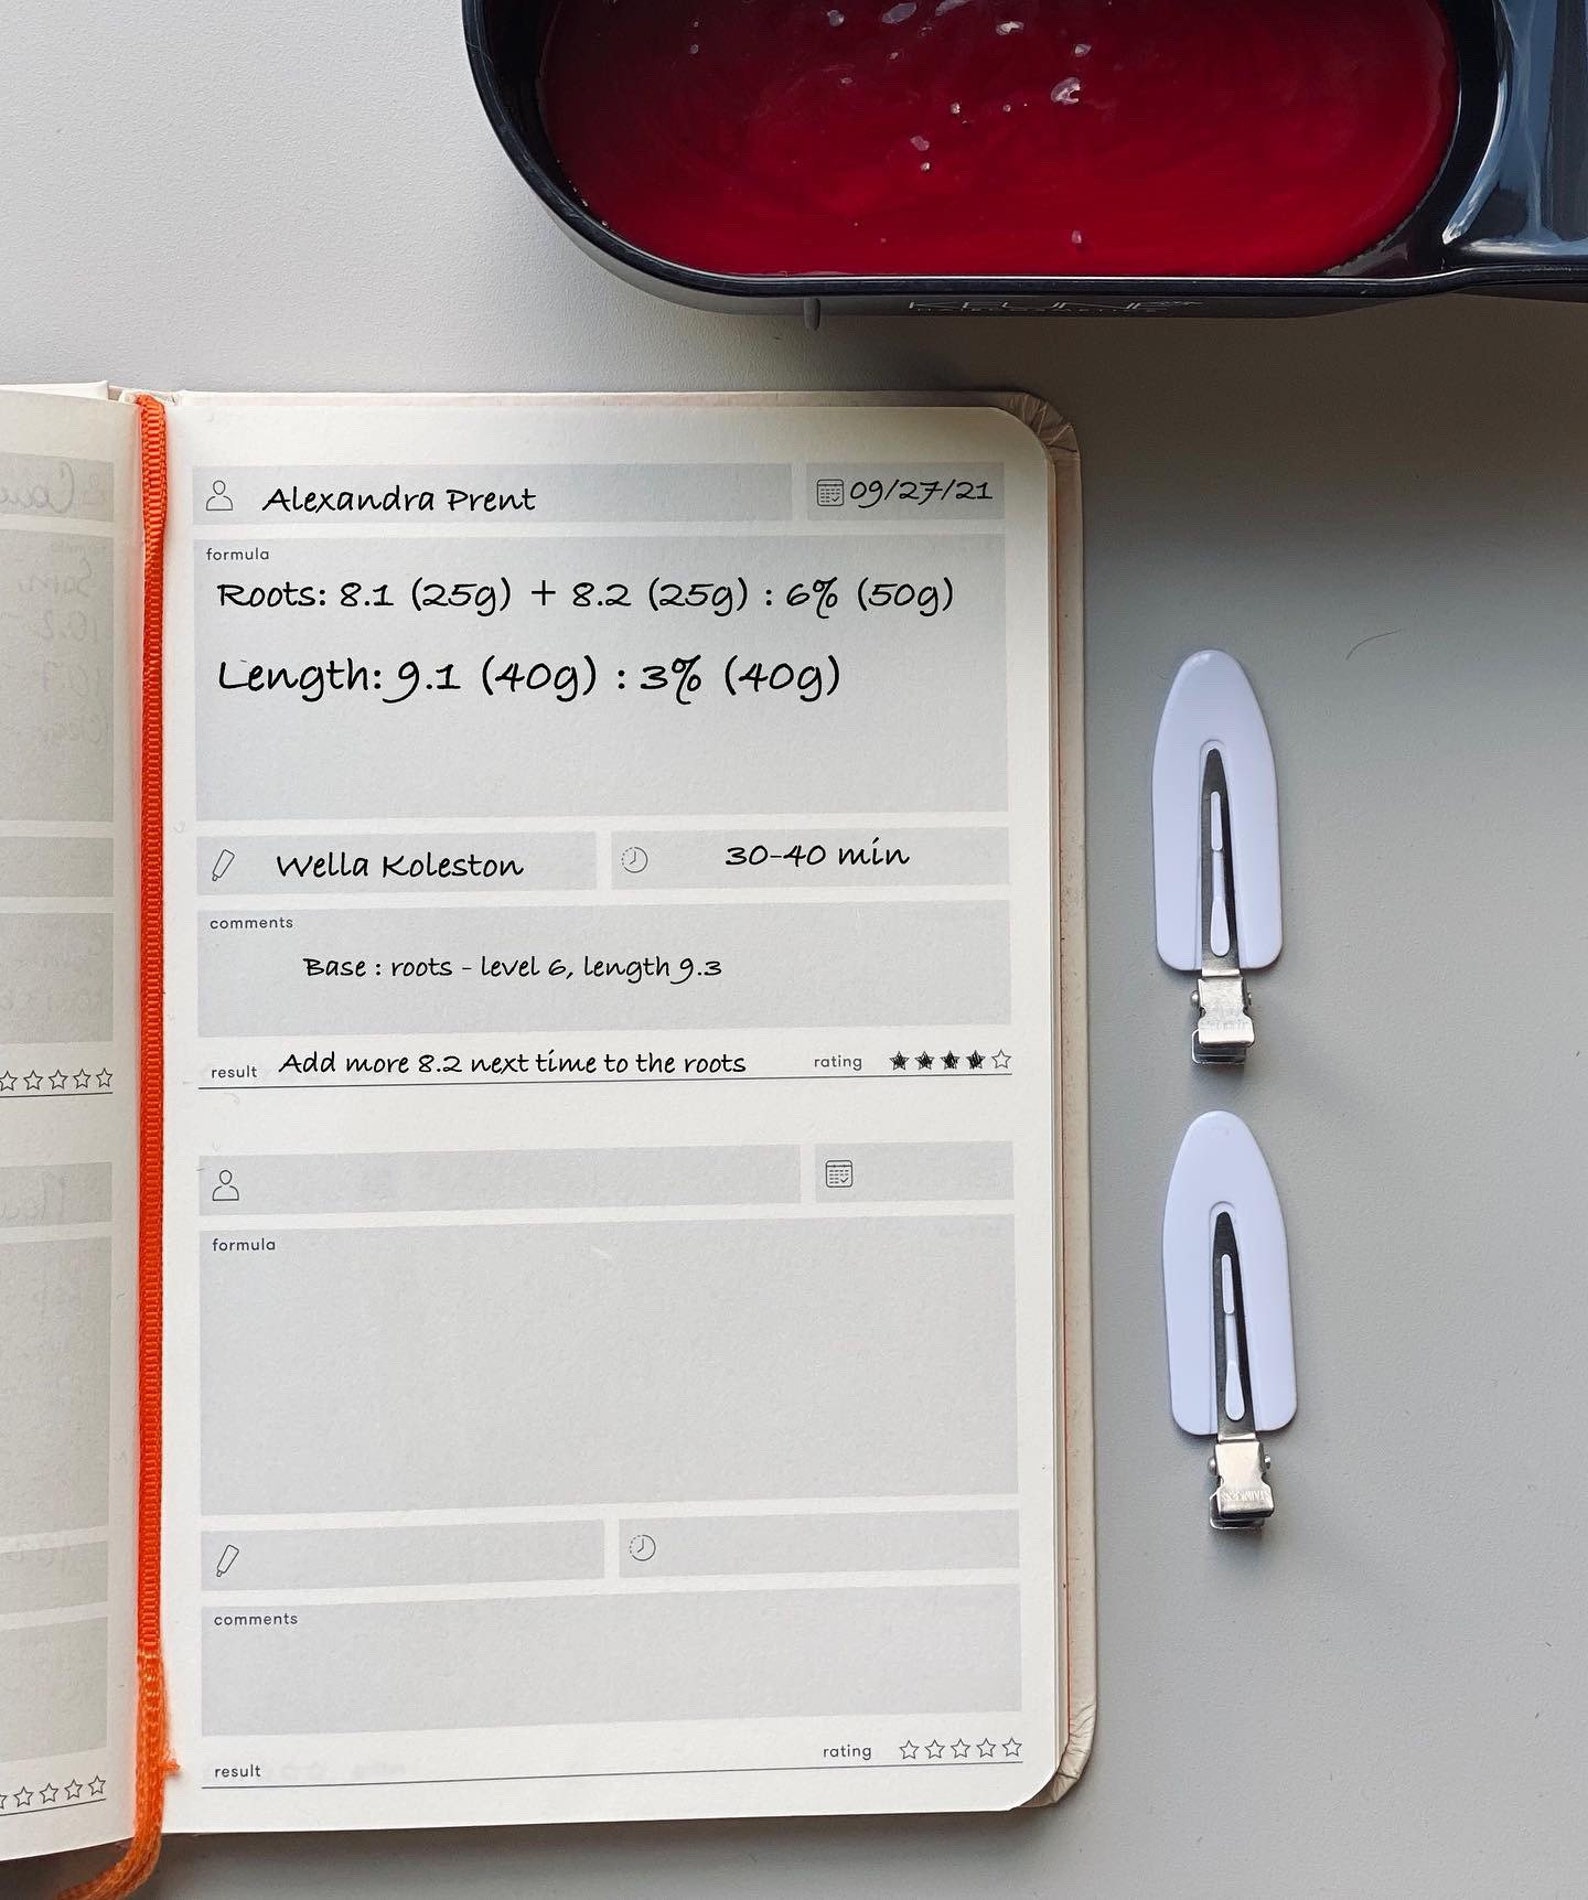 KEUNE
HAIRCOSMETICS
Alexandra Prent
09/27/21
formula
Roots: 8.1 (25g) + 8.2 (25g) : 6% (50g)
Length: 9.1 (40g) : 3% (40g)
Wella Koleston
30-40 min
comments
Base : roots - level 6, length 9.3
result Add more 8.2 next time to the roots
rating
formula
comments
rating
result